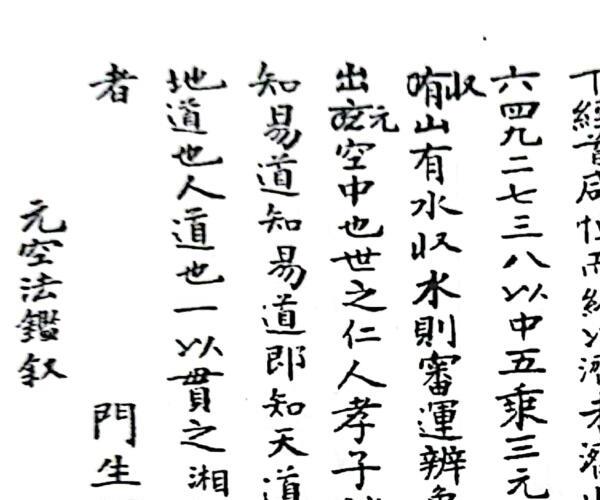 下經首咸恒而終以濟未濟
六四九二七三八以中五乘三元
收山有水收水則審運辨
出元空中也世之仁人孝子
知易道知易道即知天道
地道也人道也一以貫之湘
者 門生
元空法鑑叙